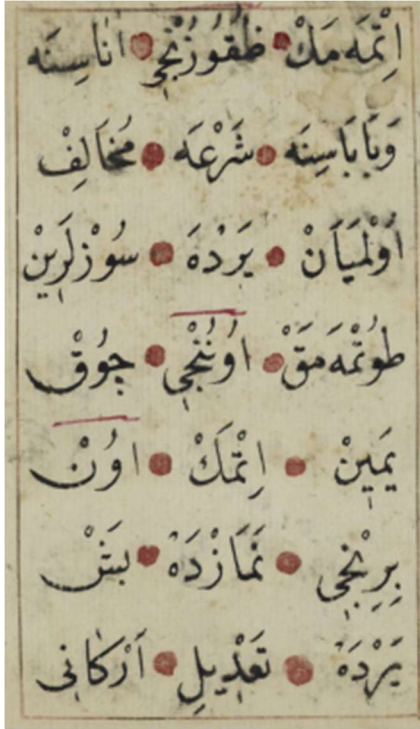 اِتْمَه مَكْ ظُقُوزُنْجِی اٰنَاسِنَه
وَبَابَاسِنَه شَرْعَه مُخَالِفْ
اُوْلْمَیَانْ یَرْدَه سُوْزْلَرِیْنْ
طُوتْمَه مَقْ اوُنُنْجِی چُوقْ
یَمِیْنْ اِتْمَكْ اوُنْ
بِرِنْجِی نَمَازْدَه بَشْ
یَرْدَه تَعْدِیلِ اَرْكَانِی